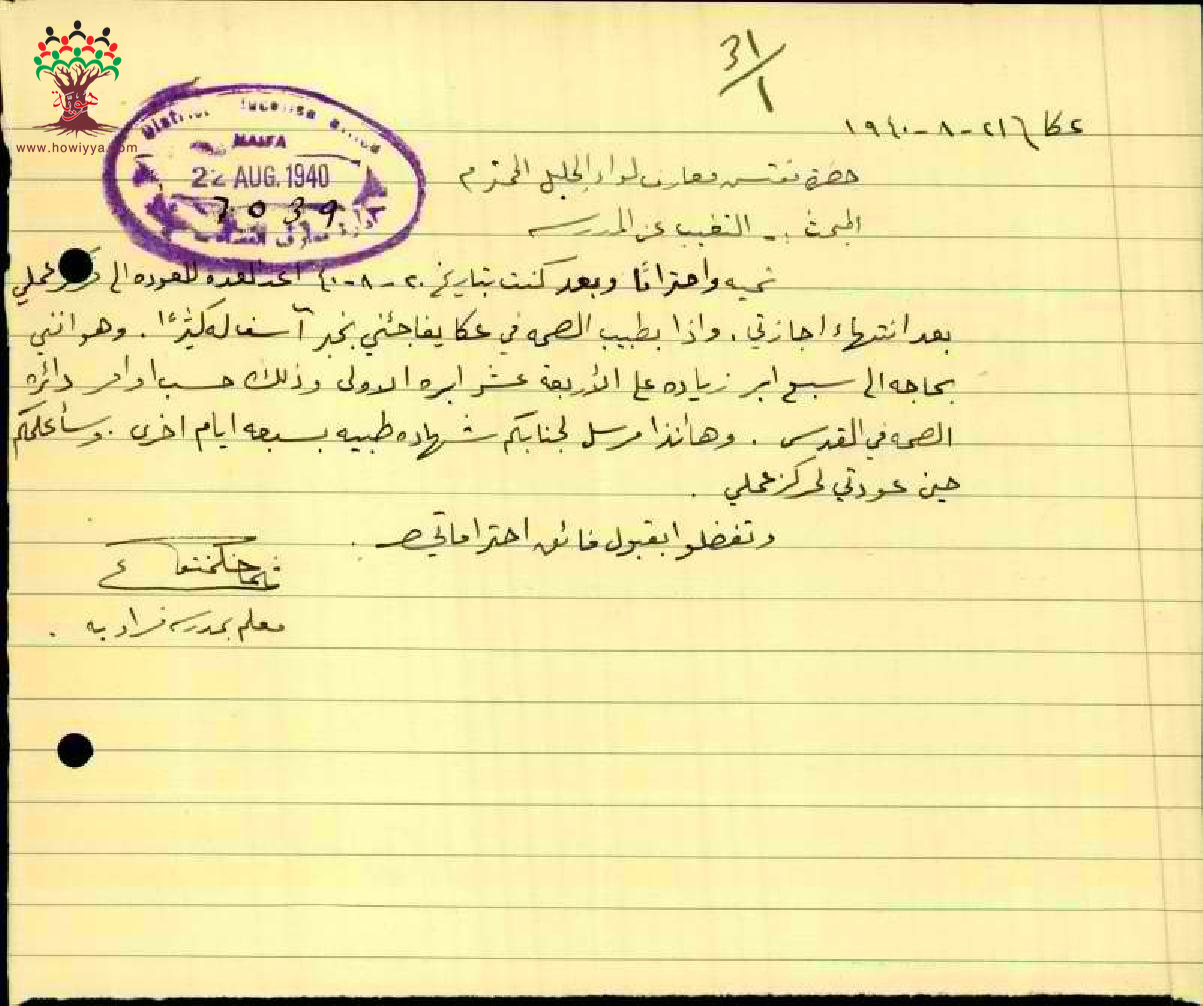 31/1
هوية
www.howiyya.com
District Office
HAIFA
22 AUG. 1940
7039
عكا ٢١-٨-١٩٤٠
حضرة مفتش معارف لواء الجليل المحترم
المبحث :- التغيب عن المدرسه
تحيه واحترامًا وبعد كنت بتاريخ ٢٠-٨-٤٠ اعد العده للعوده الى مركز عملي
بعد انتهاء اجازتي. واذا بطبيب الصحه في عكا يفاجئني بخبر آسف له كثيرًا. وهو انني
بحاجه الى سبع ابر زياده على الأربعة عشر ابره الاولى وذلك حسب اوامر دائرة
الصحه في القدس. وها انذا مرسل لجنابكم شهاده طبيه بسبعه ايام اخرى. وسأعلمكم
حين عودتي لمركز عملي.
وتفضلوا بقبول فائق احتراماتي
معلم بمدرسه فراديه.